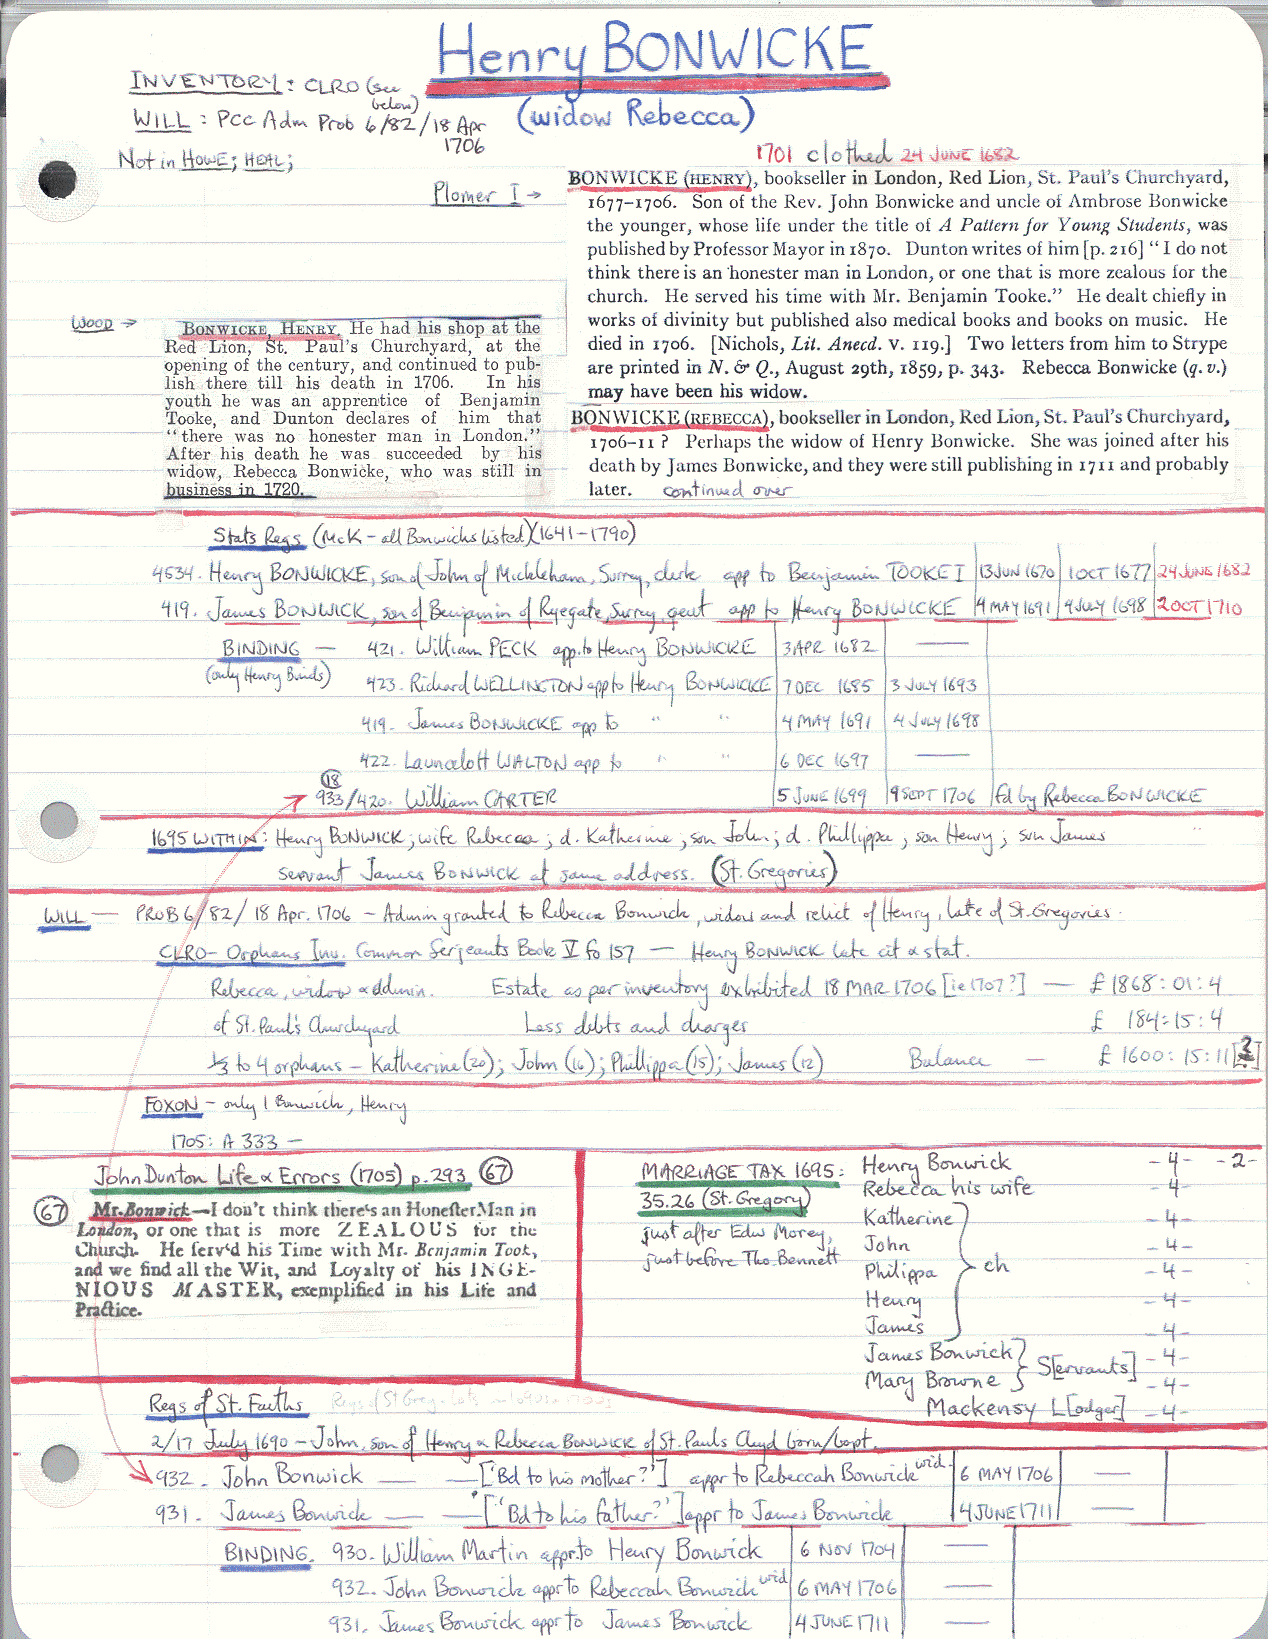 Henry BONWICKE
(widow Rebecca)
INVENTORY: CLRO (see below)
WILL: PCC Adm Prob 6/82/18 Apr 1706
Not in HOWE; HEAL;
1701 clothed 24 JUNE 1682
Plomer I →
BONWICKE (HENRY), bookseller in London, Red Lion, St. Paul's Churchyard,
1677-1706. Son of the Rev. John Bonwicke and uncle of Ambrose Bonwicke
the younger, whose life under the title of A Pattern for Young Students, was
published by Professor Mayor in 1870. Dunton writes of him [p. 216] "I do not
think there is an honester man in London, or one that is more zealous for the
church. He served his time with Mr. Benjamin Tooke." He dealt chiefly in
works of divinity but published also medical books and books on music. He
died in 1706. [Nichols, Lit. Anecd. V. 119.] Two letters from him to Strype
are printed in N. & Q., August 29th, 1859, p. 343. Rebecca Bonwicke (q.v.)
may have been his widow.
BONWICKE (REBECCA), bookseller in London, Red Lion, St. Paul's Churchyard,
1706-11? Perhaps the widow of Henry Bonwicke. She was joined after his
death by James Bonwicke, and they were still publishing in 1711 and probably
later. continued over
WOOD →
BONWICKE, HENRY. He had his shop at the
Red Lion, St. Paul's Churchyard, at the
opening of the century, and continued to pub-
lish there till his death in 1706. In his
youth he was an apprentice of Benjamin
Tooke, and Dunton declares of him that
"there was no honester man in London."
After his death he was succeeded by his
widow, Rebecca Bonwicke, who was still in
business in 1720.
Stats Regs (McK - all Bonwicks listed) (1641-1790)
4534. Henry BONWICKE, son of John of Mickleham, Surrey, clerk app to Benjamin TOOKE I 13 JUN 1670 1 OCT 1677 24 JUNE 1682
419. James BONWICK, son of Benjamin of Ryegate, Surrey, gent app to Henry BONWICKE 4 MAY 1691 4 JULY 1698 2 OCT 1710
BINDING — 421. William PECK app. to Henry BONWICKE 3 APR 1682 —
(only Henry Binds) 423. Richard WELLINGTON app to Henry BONWICKE 7 DEC 1685 3 JULY 1693
419. James BONWICKE app to " " 4 MAY 1691 4 JULY 1698
422. Launcelott WALTON app to " " 6 DEC 1697 —
(18)
933/420. William CARTER 5 JUNE 1699 9 SEPT 1706 fd by Rebecca BONWICKE
1695 WITHIN: Henry BONWICK; wife Rebecca; d. Katherine; son John; d. Phillippa; son Henry; son James
servant James BONWICK at same address. (St. Gregories)
WILL — PROB 6/82/18 Apr. 1706 - Admin granted to Rebecca Bonwick, widow and relict of Henry, late of St. Gregories.
CLRO - Orphans Inv. Common Serjeants Book V fo 157 — Henry BONWICK late cit & stat.
Rebecca, widow & admin. Estate as per inventory exhibited 18 MAR 1706 [ie 1707?] — £1868:01:4
of St. Paul's Churchyard Less debts and charges £ 184:15:4
⅓ to 4 orphans - Katherine (20); John (16); Phillippa (15); James (12) Balance — £1600:15:11 [?]
FOXON - only 1 Bonwick, Henry
1705: A 333 -
John Dunton Life & Errors (1705) p. 293 (67)
(67) Mr. Bonwick—I don't think there's an Honester Man in
London, or one that is more ZEALOUS for the
Church. He serv'd his Time with Mr. Benjamin Took,
and we find all the Wit, and Loyalty of his INGE-
NIOUS MASTER, exemplified in his Life and
Practice.
MARRIAGE TAX 1695:
35.26 (St. Gregory)
just after Edw Morey,
just before Tho. Bennett
Henry Bonwick -4- -2-
Rebecca his wife -4-
Katherine -4-
John -4-
Philippa } ch -4-
Henry -4-
James -4-
James Bonwick } S[ervants] -4-
Mary Browne -4-
Mackensy L[odger] -4-
Regs of St. Faiths
2/17 July 1690 - John, son of Henry & Rebecca BONWICK of St. Pauls Chyd born/bapt.
932. John Bonwick — — ['Bd to his mother?'] appr to Rebeccah Bonwick wid. 6 MAY 1706 —
931. James Bonwick — — ['Bd to his father?'] appr to James Bonwick 4 JUNE 1711 —
BINDING. 930. William Martin appr. to Henry Bonwick 6 NOV 1704 —
932. John Bonwick appr to Rebeccah Bonwick wid 6 MAY 1706 —
931. James Bonwick appr to James Bonwick 4 JUNE 1711 —